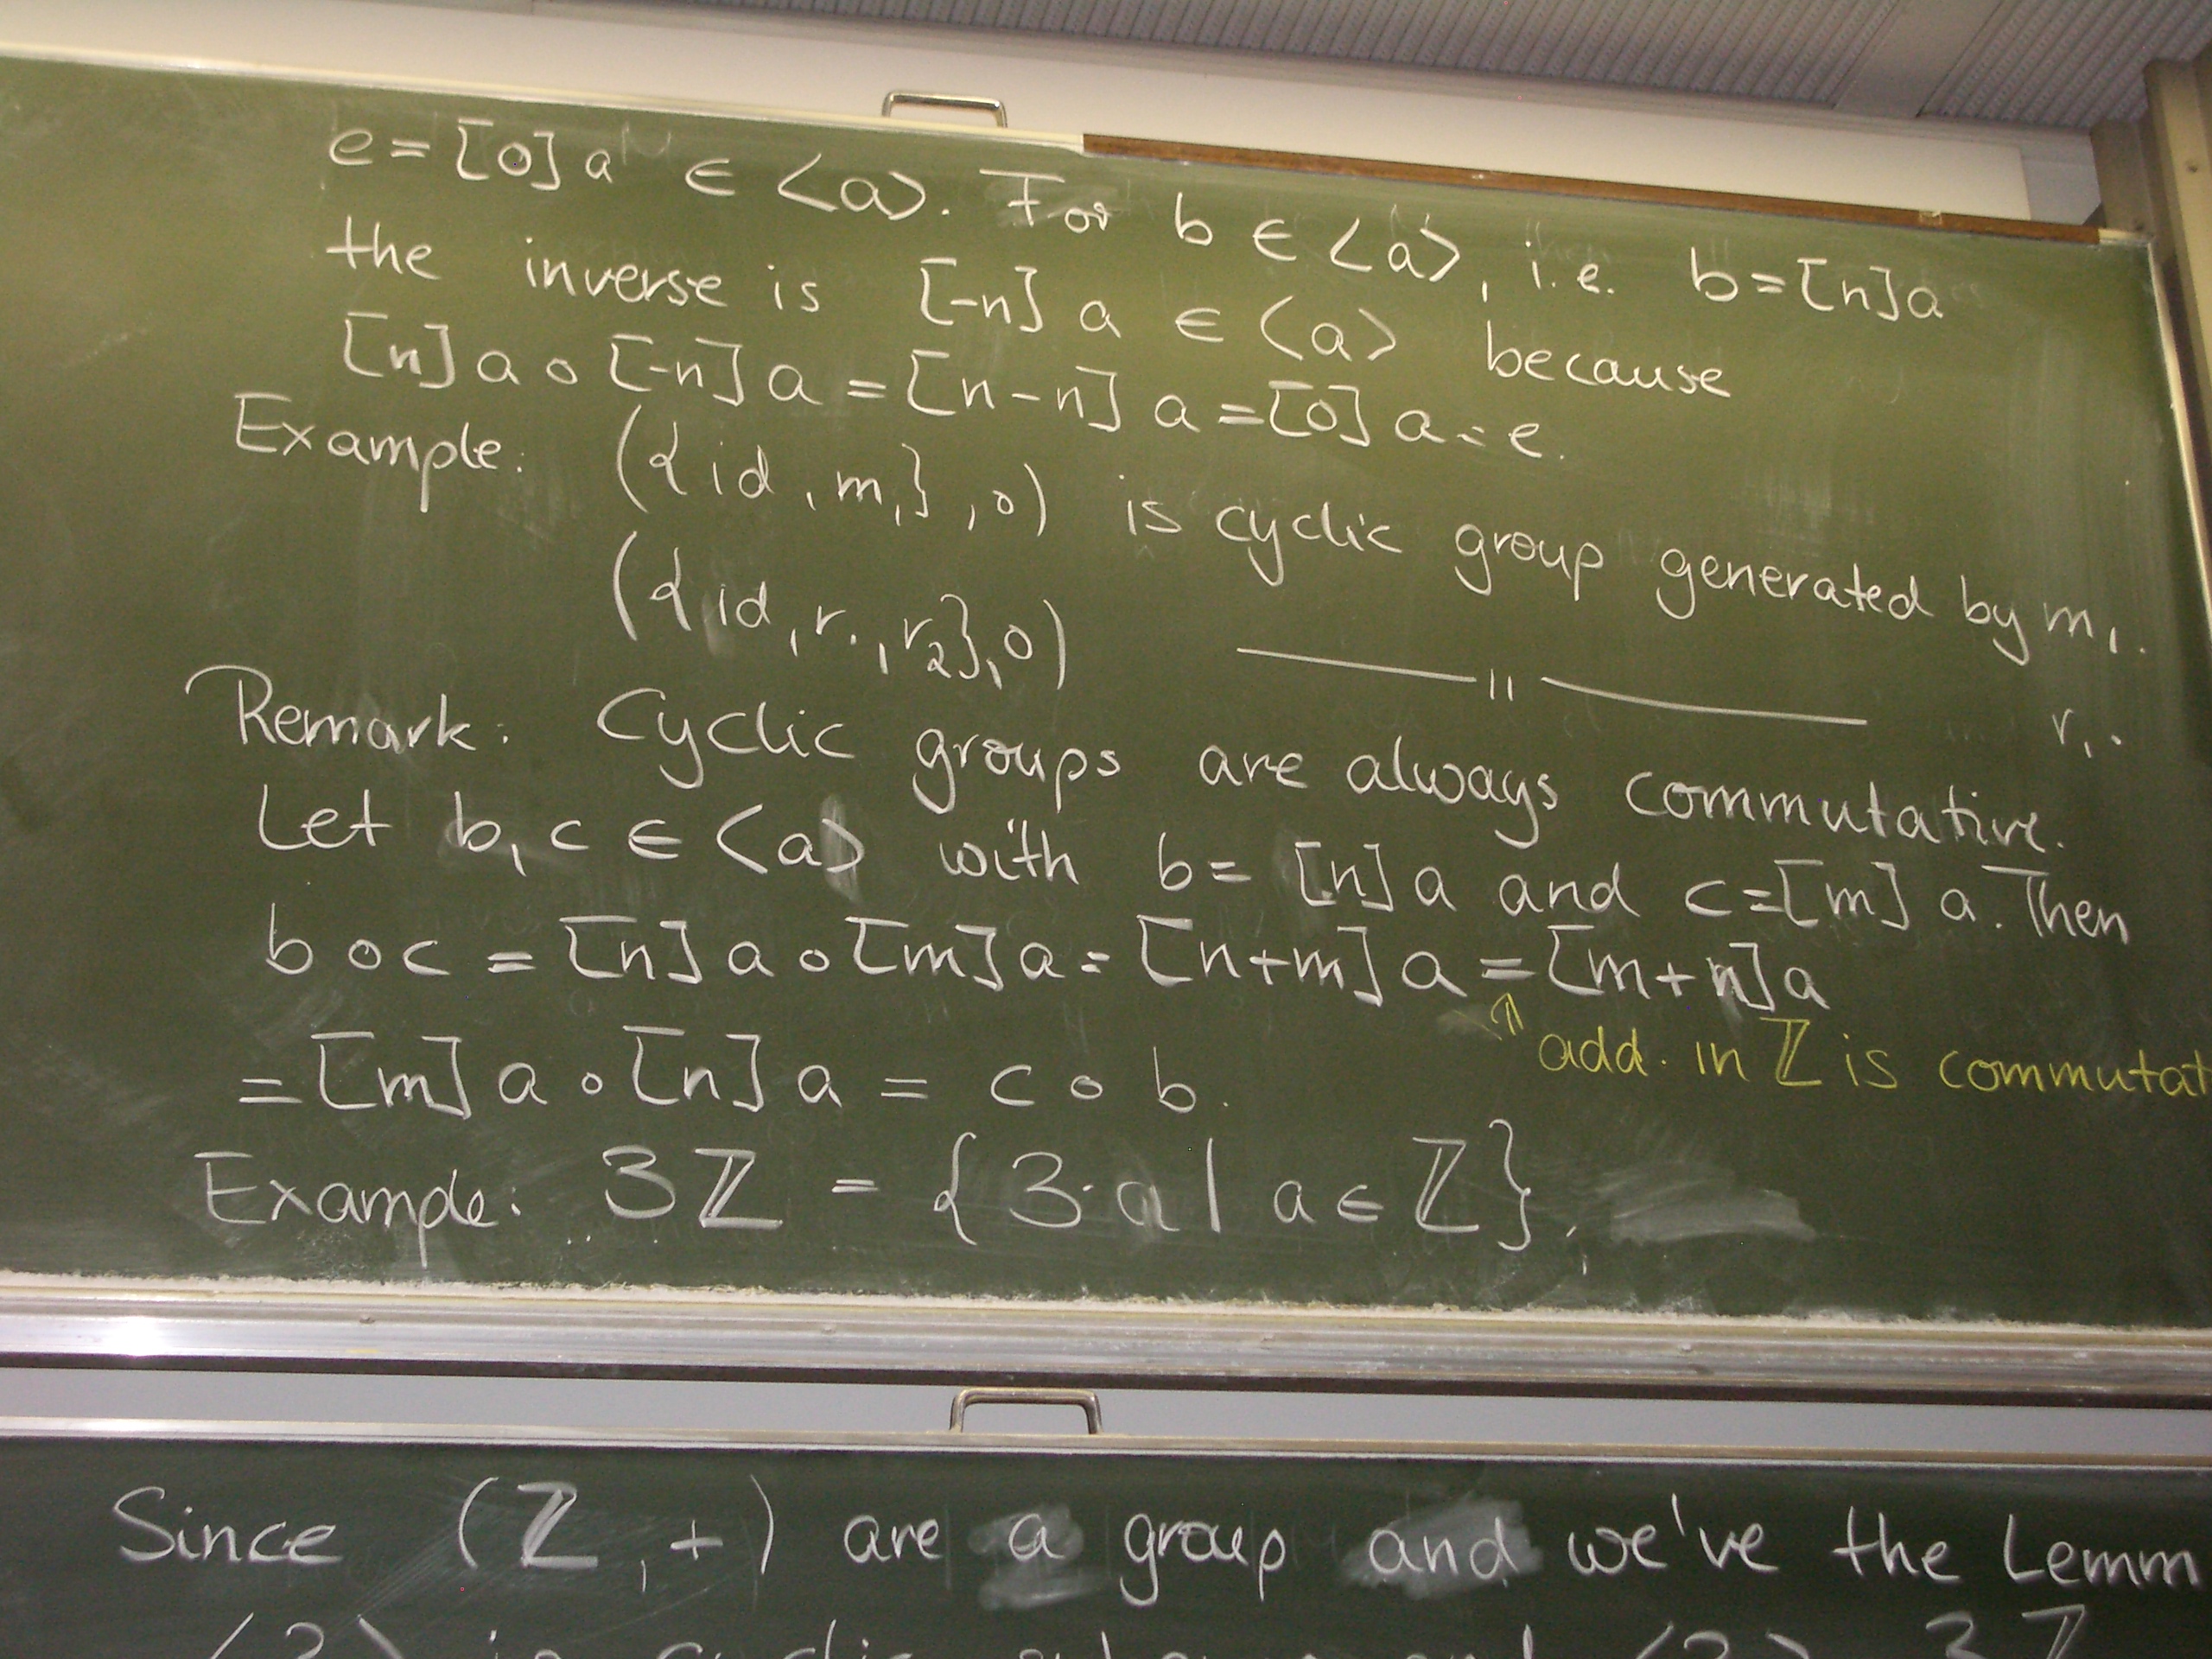 e = [0] a ∈ <a>. For b ∈ <a>, i.e. b = [n]a
the inverse is [-n] a ∈ <a> because
[n] a ∘ [-n] a = [n-n] a = [0] a = e.
Example: ({id, m₁}, ∘) is cyclic group generated by m₁.
({id, r₁, r₂}, ∘) —— " —— r₁.
Remark: Cyclic groups are always commutative.
Let b, c ∈ <a> with b = [n] a and c = [m] a. Then
b ∘ c = [n] a ∘ [m] a = [n+m] a = [m+n] a
⇑ add. in ℤ is commutat
= [m] a ∘ [n] a = c ∘ b.
Example: 3ℤ = {3·a | a ∈ ℤ},
Since (ℤ, +) are a group and we've the Lemm